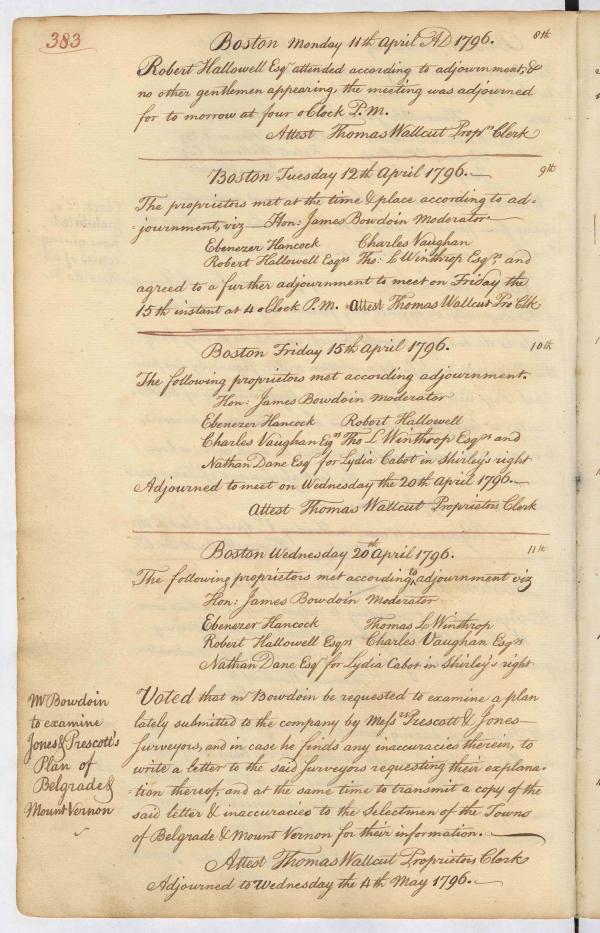 383
Boston Monday 11th April AD 1796. 8th
Robert Hallowell Esqr attended according to adjournment, &
no other gentlemen appearing, the meeting was adjourned
for to morrow at four oClock P.M.
Attest Thomas Wallcut Proprs Clerk
Boston Tuesday 12th April 1796. 9th
The proprietors met at the time & place according to ad-
-journment, viz Hon: James Bowdoin Moderator
Ebenezer Hancock Charles Vaughan
Robert Hallowell Esqrs Tho: L Winthrop Esqrs and
agreed to a further adjournment to meet on Friday the
15th instant at 4 oClock P.M. Attest Thomas Wallcut Pro Clk
Boston Friday 15th April 1796. 10th
The following proprietors met according adjournment.
Hon: James Bowdoin Moderator
Ebenezer Hancock Robert Hallowell
Charles Vaughan Esqrs Tho L Winthrop Esqrs and
Nathan Dane Esqr for Lydia Cabot in Shirley's right
Adjourned to meet on Wednesday the 20th April 1796.
Attest Thomas Wallcut Proprietors Clerk
Boston Wednesday 20th April 1796. 11th
The following proprietors met according to adjournment viz
Hon: James Bowdoin Moderator
Ebenezer Hancock Thomas L Winthrop
Robert Hallowell Esqrs Charles Vaughan Esqrs
Nathan Dane Esqr for Lydia Cabot in Shirley's right
Mr Bowdoin
to examine
Jones & Prescott's
Plan of
Belgrade &
Mount Vernon
Voted that mr Bowdoin be requested to examine a plan
lately submitted to the company by Messrs Prescott & Jones
Surveyors, and in case he finds any inaccuracies therein, to
write a letter to the said Surveyors requesting their explana-
-tion thereof, and at the same time to transmit a copy of the
said letter & inaccuracies to the Selectmen of the Towns
of Belgrade & Mount Vernon for their information.
Attest Thomas Wallcut Proprietors Clerk
Adjourned to Wednesday the 4th May 1796.